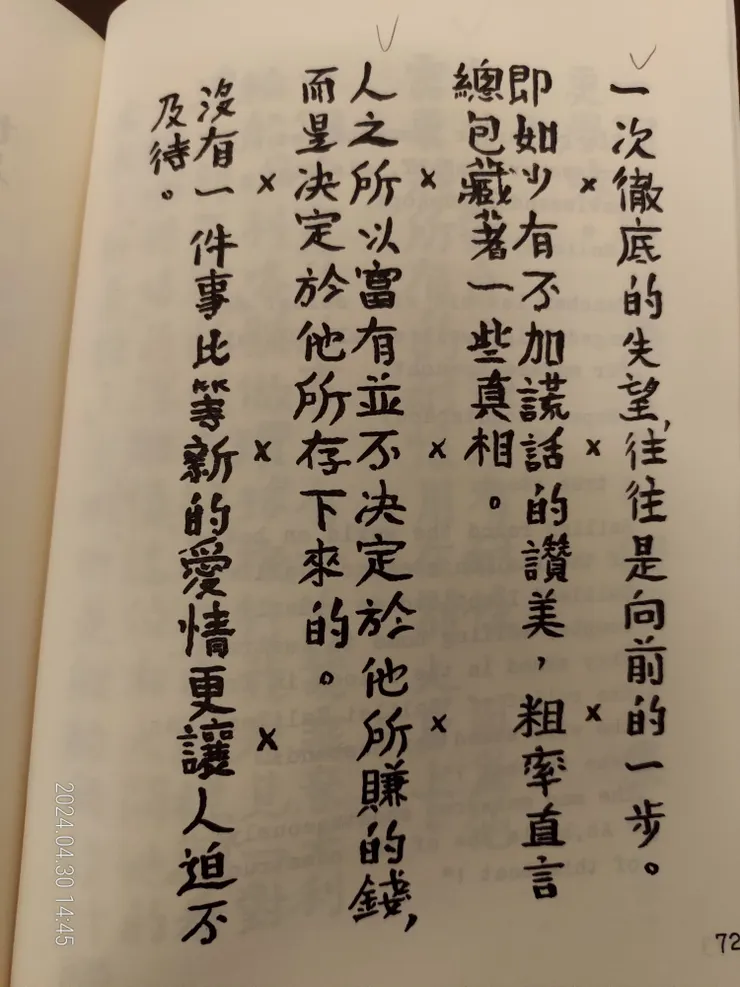 一次徹底的失望，往往是向前的一步。
×××
即如少有不加謊話的讚美，粗率直言
總包藏著一些真相。
×××
人之所以富有並不決定於他所賺的錢，
而是決定於他所存下來的。
×××
沒有一件事比等新的愛情更讓人迫不
及待。
72
2024.04.30 14:45